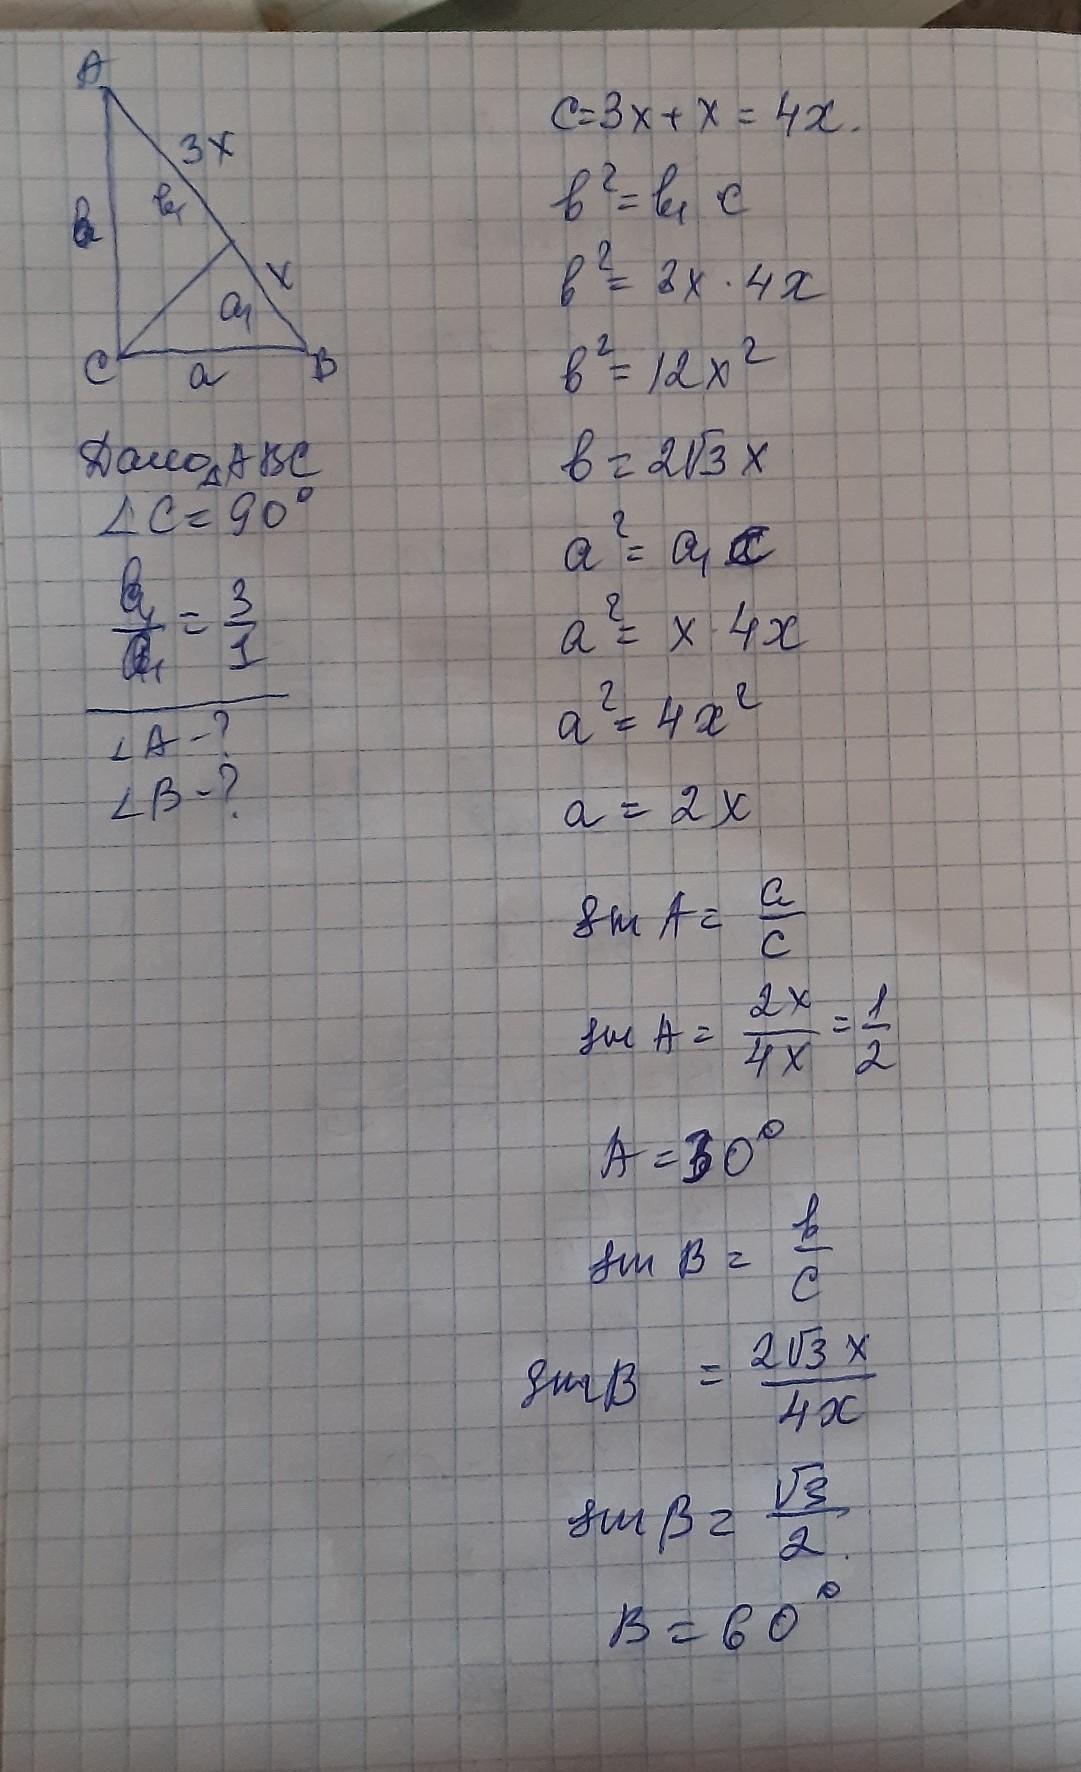 A
3x
b₁
b
x
a₁
C
a
B
Дано △ABC
∠C = 90°
b₁/a₁ = 3/1
∠A - ?
∠B - ?
c = 3x + x = 4x.
b² = b₁ c
b² = 3x · 4x
b² = 12x²
b = 2√3 x
a² = a₁ c
a² = x · 4x
a² = 4x²
a = 2x
sin A = a/c
sin A = 2x/4x = 1/2
A = 30°
sin B = b/c
sin B = 2√3 x/4x
sin B = √3/2.
B = 60°